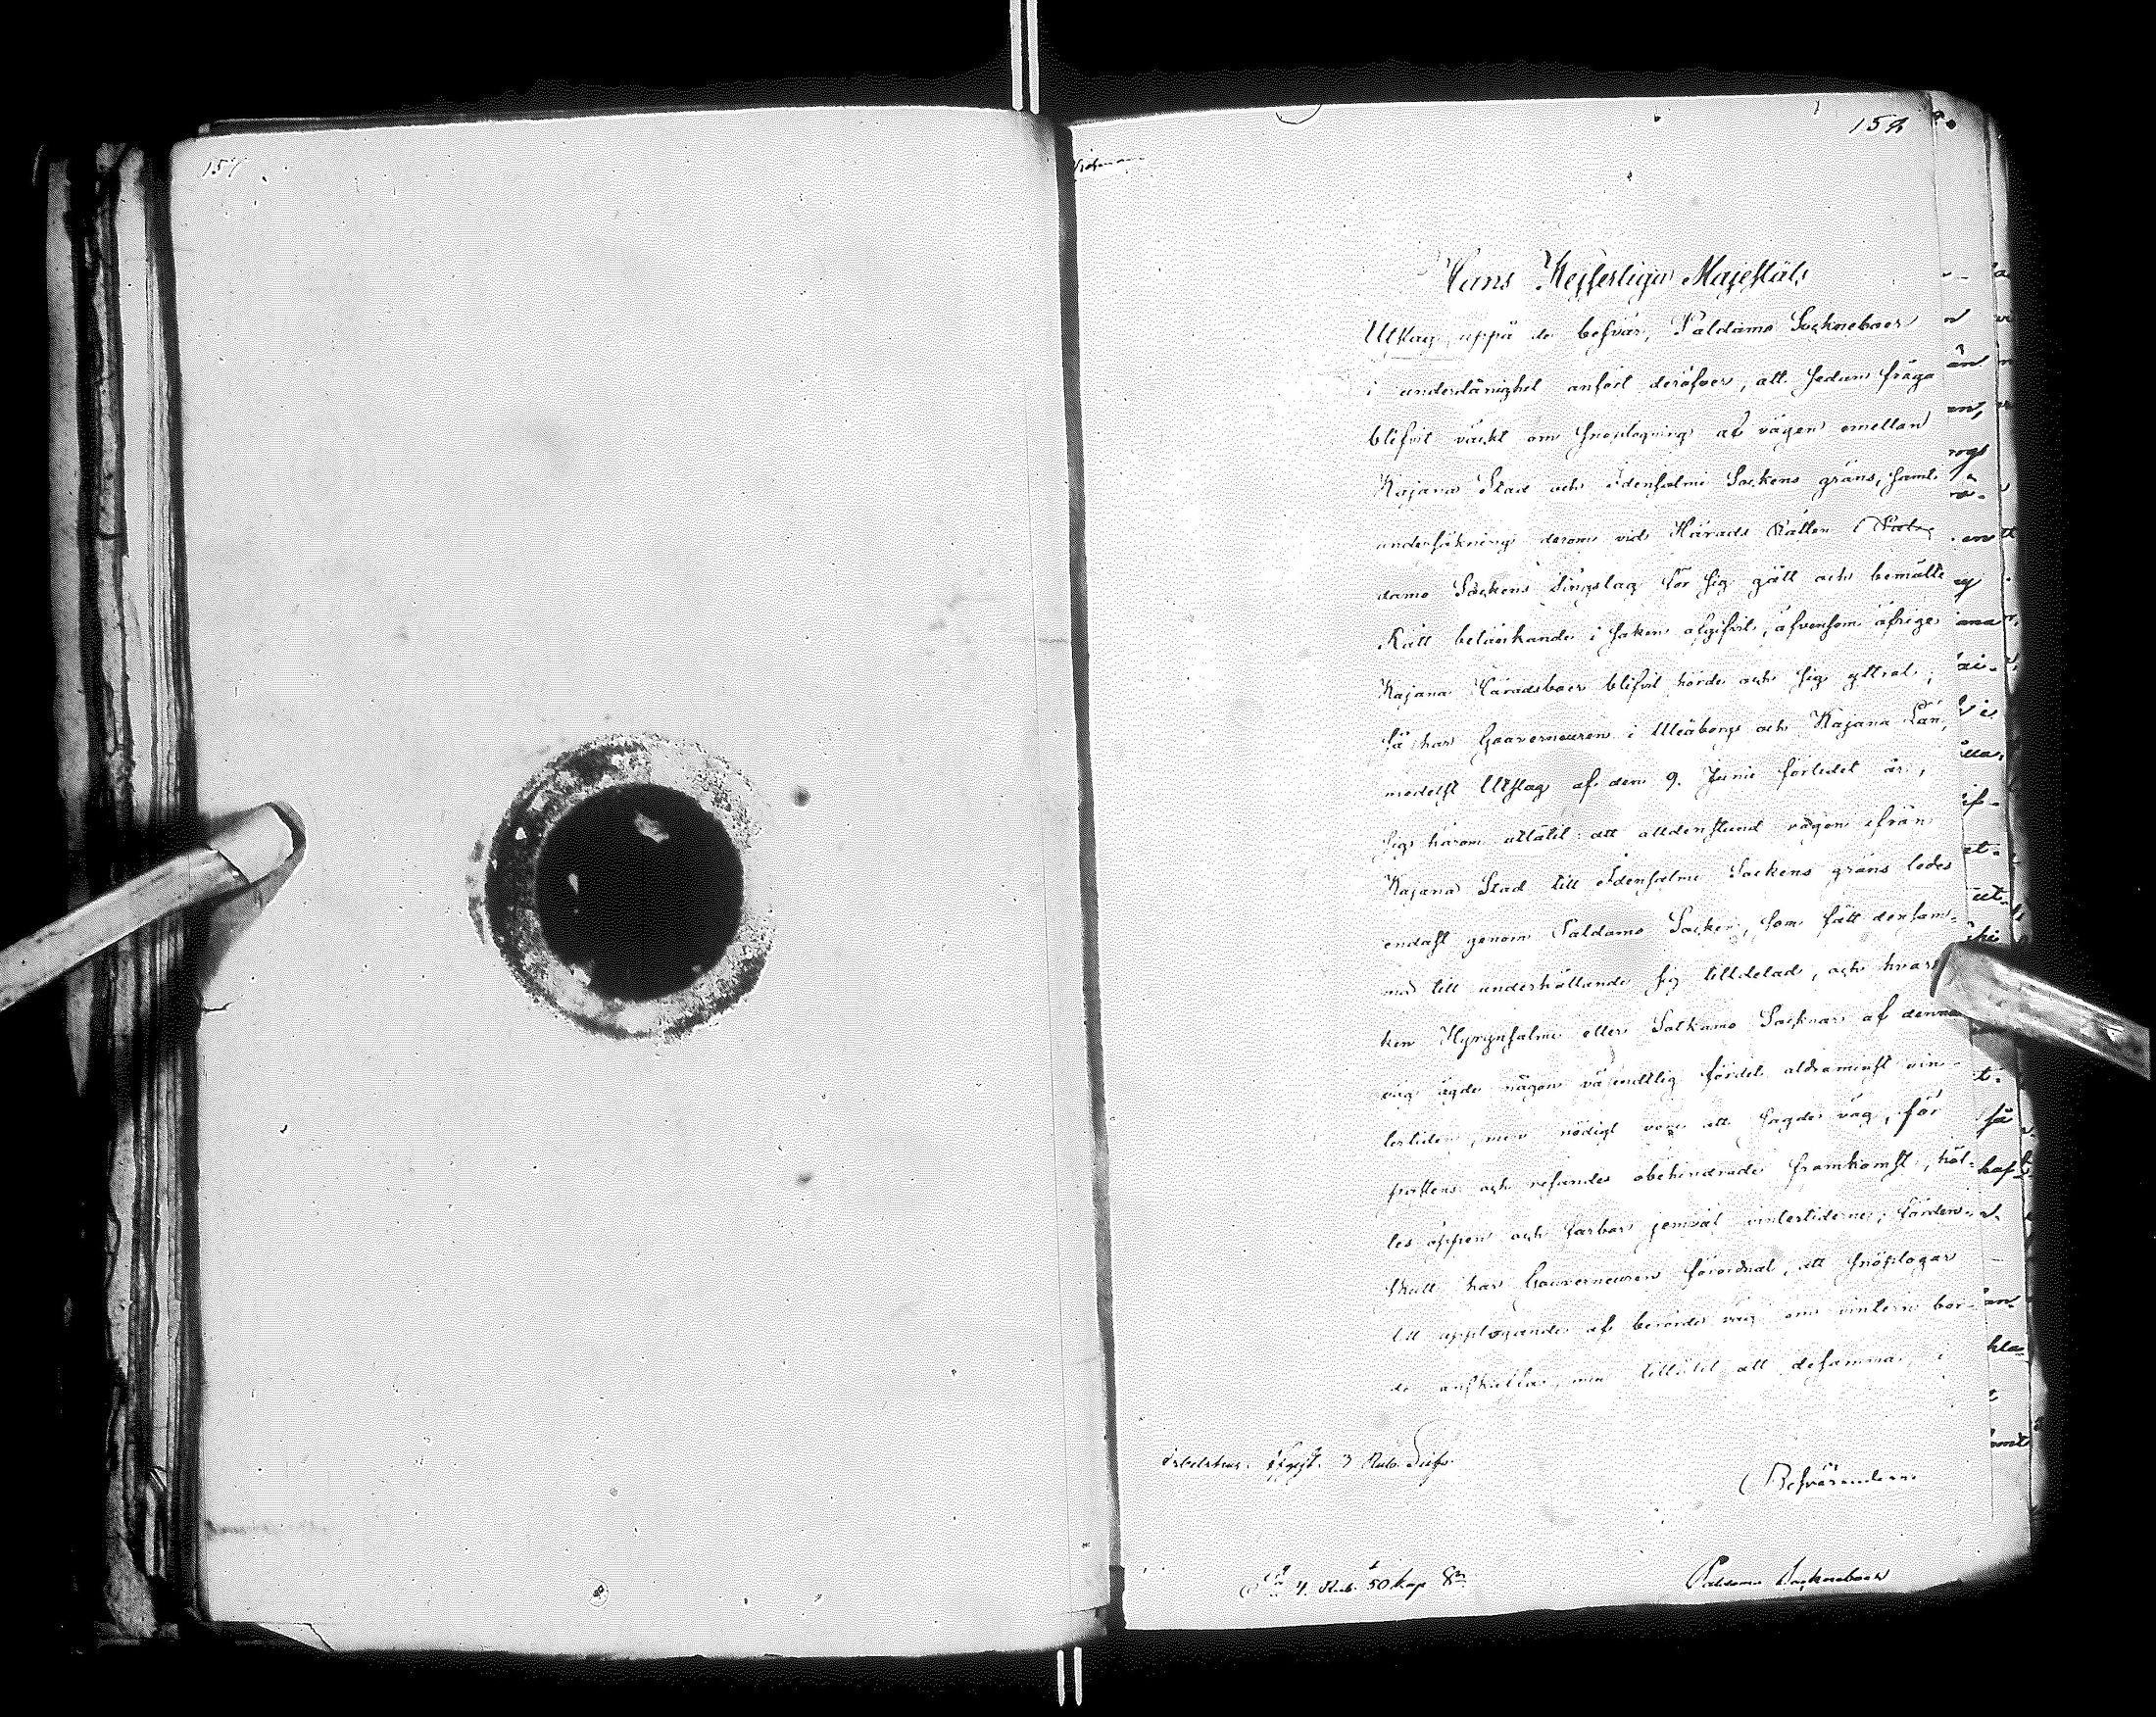 157
158
Hans Kejserliga Majestäts
Utslag uppå de besvär, Paldamo Sockneboer
i underdånighet anfört deröfver, att sedan fråga
blifvit väckt om snöplogning af vägen emellan
Kajana Stad och Idensalmi Sockens gräns, samt
undersökning derom vid Härads Rätten i Pal-
damo Sockens Tingslag för sig gått och bemälte
Rätt betänkande i saken afgifvit, äfvensom öfrige
Kajana Häradsboer blifvit hörde och sig yttrat;
så har Gouverneuren i Uleåborgs och Kajana Län,
medelst Utslag af den 9. Junii förledet år,
sig härom utlåtit: att alldenstund vägen ifrån
Kajana Stad till Idensalmi Sockens gräns ledes
endast genom Paldamo Socken, som fått densam-
ma till underhållande sig tilldelad, och hvar-
ken Hyrynsalmi eller Sotkamo Socknar af denna
väg ägde någon väsendtlig fördel aldraminst vin-
tertiden, men nödigt vore att sagde väg, för
postens och resandes obehindrade framkomst, höl-
les öppen och farbar jemväl vintertiderne; fördren-
skull har Gouverneuren förordnat, att snöplogar
till upplogande af berörde väg om vintern bor-
de anskaffas, men tillåtit att desamma, i
3 Rub. Silfr
Besväranderne
4. Rub. 50 kop
Paldamo Sockneboer